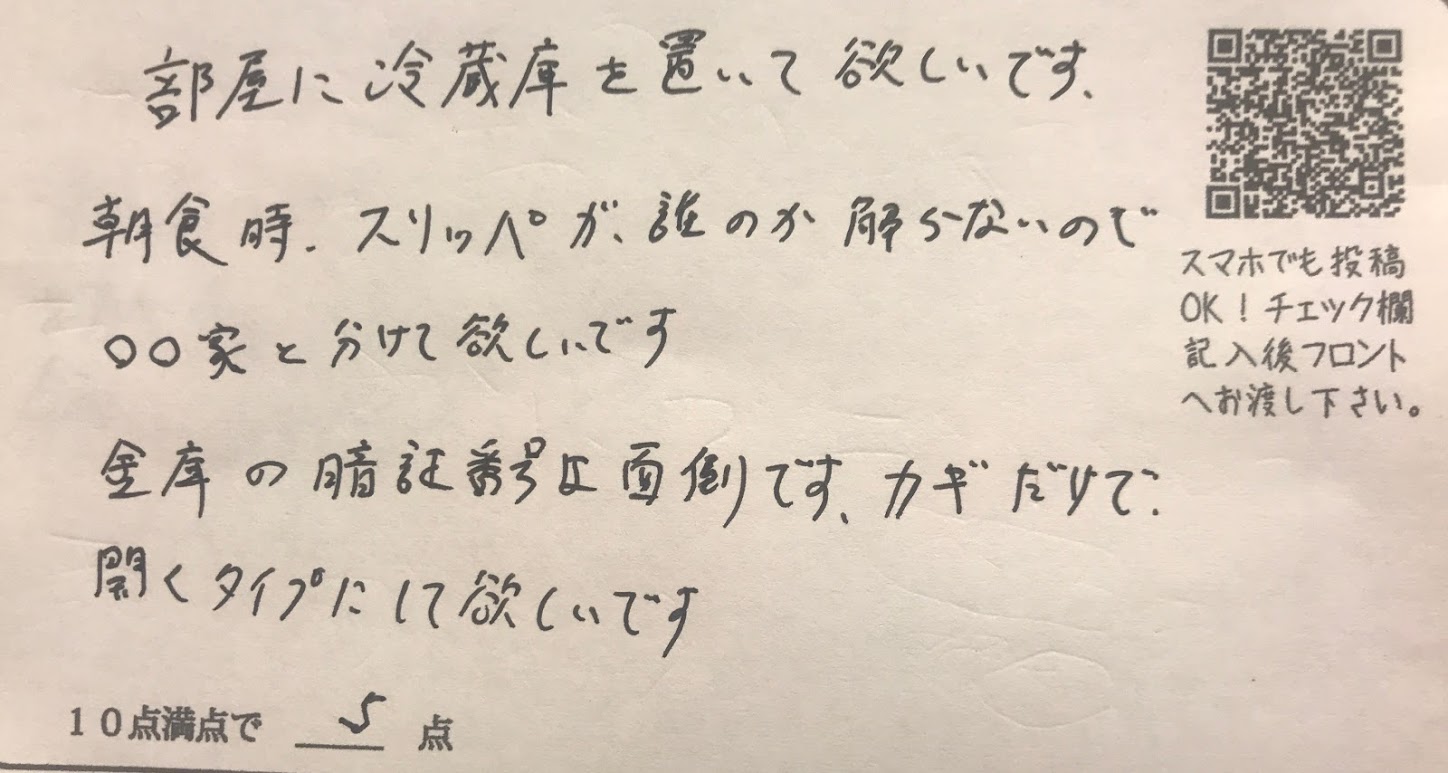 部屋に冷蔵庫を置いて欲しいです、
朝食時、スリッパが、誰のか解らないので
○○家と分けて欲しいです
金庫の暗証番号は面倒です、カギだけで、
開くタイプにして欲しいです
スマホでも投稿
OK！チェック欄
記入後フロント
へお渡し下さい。
10点満点で 5 点